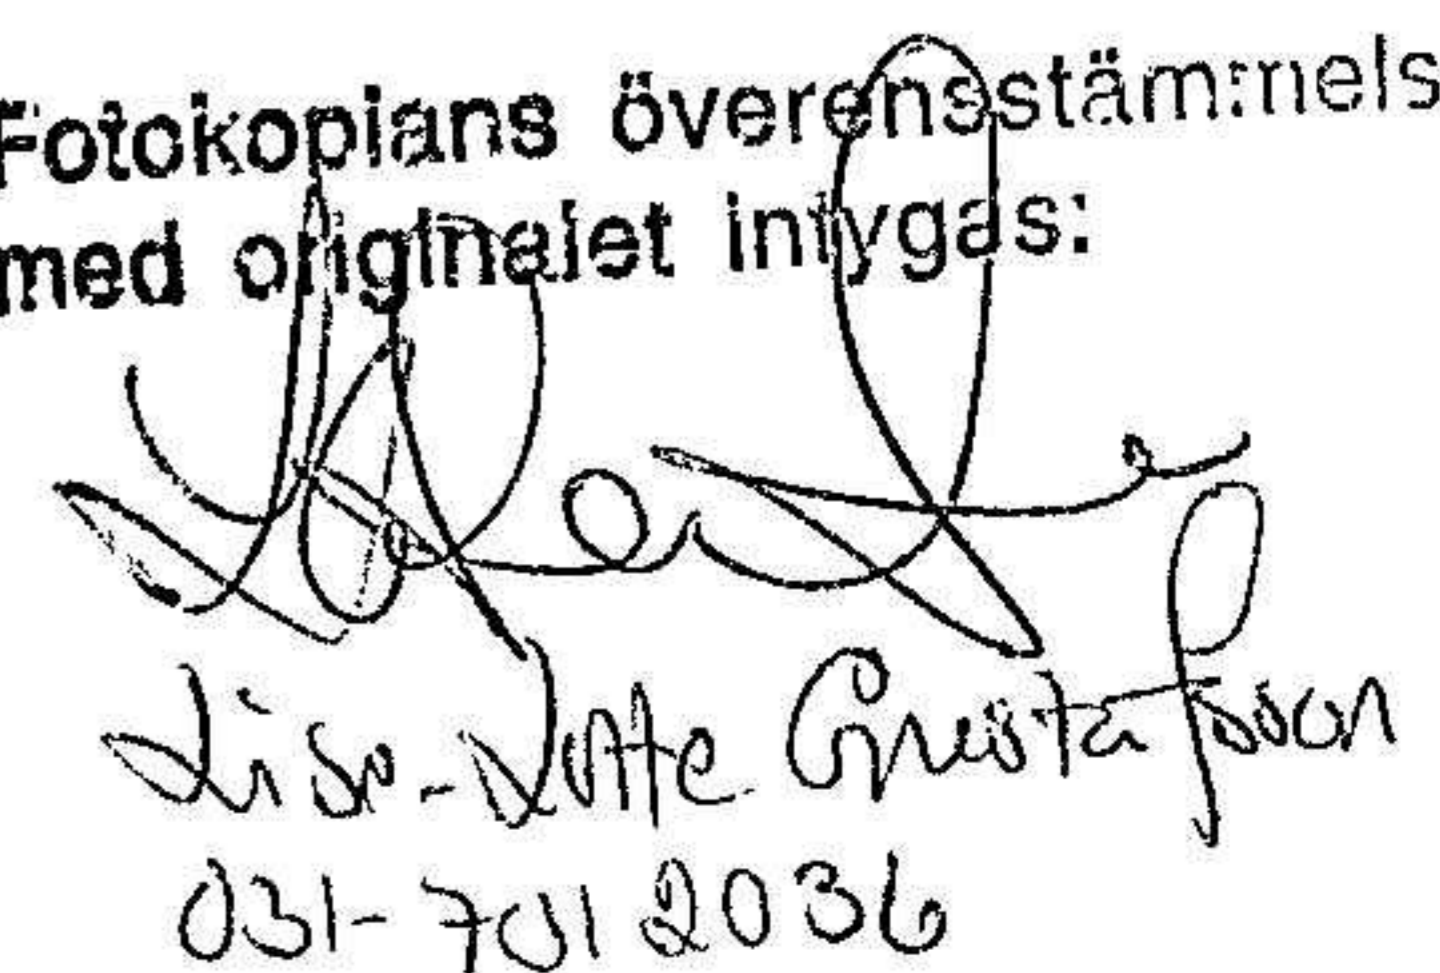 Fotokopians överensstämmels
med originalet intygas:
Lise-Lotte Gustafsson
031-701 2036